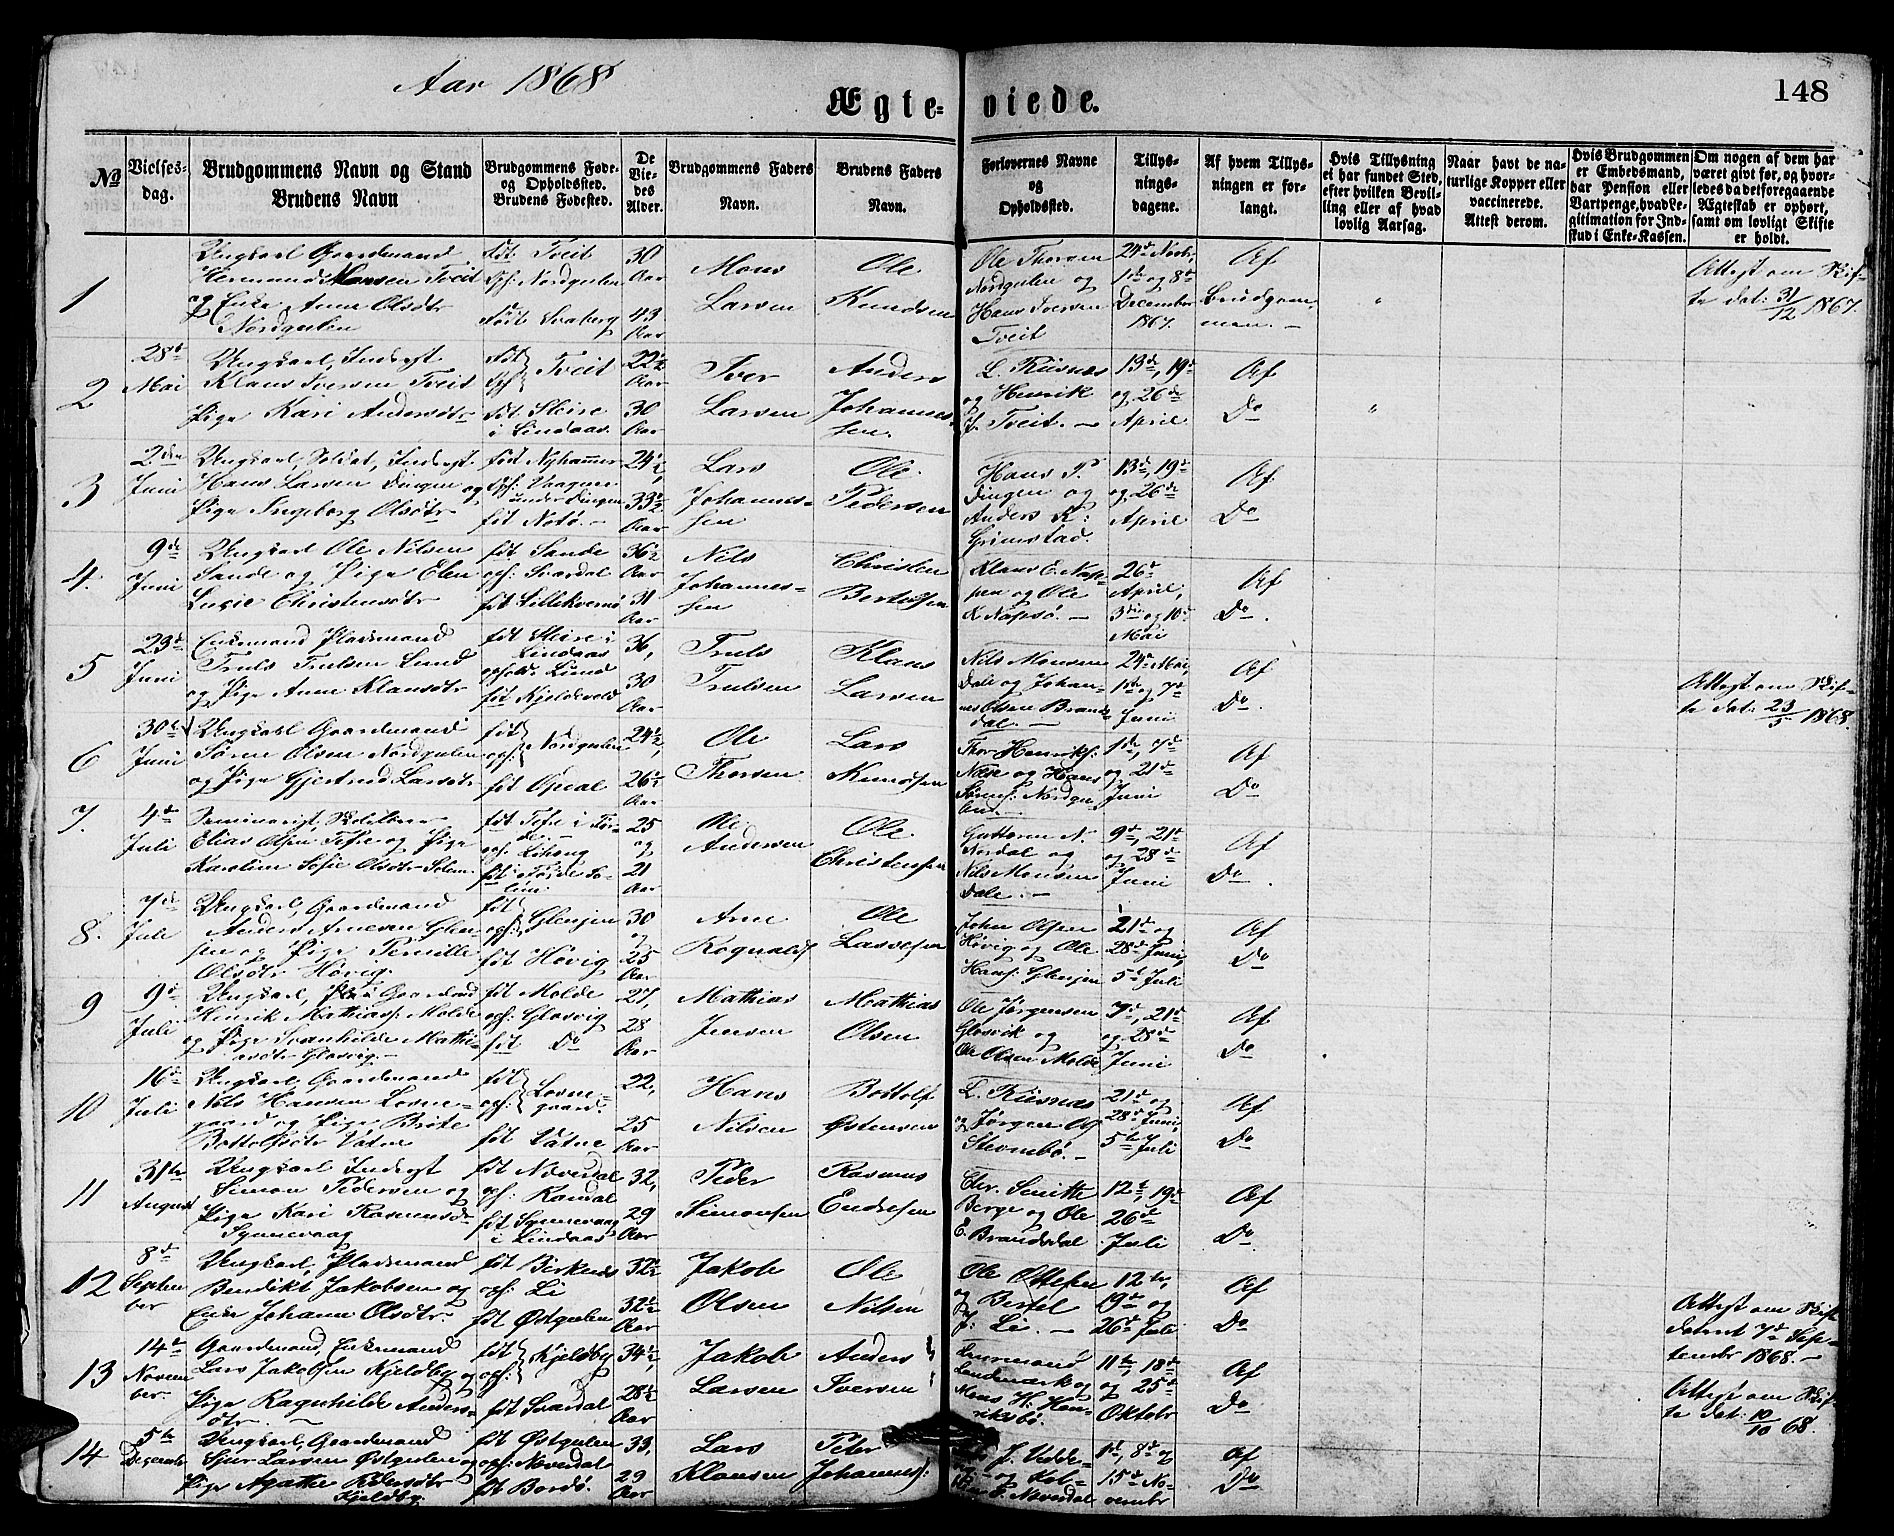 Aar 1868
148
Ægteviede.
No
Vielsesdag.
Brudgommens Navn og Stand
Brudens Navn
Brudgommens Føde- og Opholdssted.
Brudens Fødested.
De Viedes Alder.
Brudgommens Faders Navn.
Brudens Faders Navn.
Forlovernes Navne og Opholdssted.
Tillysningsdagene.
Af hvem Tillysningen er forlangt.
Hvis Tillysning ei har fundet Sted, efter hvilken Bevilling eller af hvad lovlig Aarsag.
Naar havt de naturlige Kopper eller vaccinerede. Attest derom.
Hvis Brudgommen er Embedsmand, har Pension eller Vartpenge, hvad Legitimation for Indskud i Enke-Kassen.
Om nogen af dem har været givt før, og hvorledes da det foregaaende Ægteskab er ophørt, samt om lovligt Skifte er holdt.
1
Ungkarl Gaardmand
Monsen Tveit
og Enke Anne Olsdtr
Nordgulen
født Tveit
Oph: Nordgulen
født Svaberg
30 Aar
43 Aar
Mons Larsen
Ole Knudsen
Ole Thorsen
Nordgulen og
Hans Iversen
Tveit
24de Novbr,
1ste og 8de
December
1867.
Af Brudgommen. —
"
Attest om Skifte dat: 31/12 1867.
2
28de Mai
Ungkarl, Inderst
Klaus Iversen Tveit
Pige Kari Andersdtr
født Oph: } Tveit
født Sleire
i Lindaas.
22½ Aar
30 Aar
Iver Larsen
Anders Johannessen.
L. Risnes
og Henrik
J. Tveit. —
13de, 19de
og 26de
April
Af Do
"
3
2den Juni
Ungkarl, Soldat, Inderst
Hans Larsen Dingen og
Pige Ingeborg Olsdtr
født Nyhammer
Oph: Vaagene
under Dingen
født Notø. —
24½,
33½ Aar
Lars Johannessen
Ole Pedersen
Hans P.
Dingen og
Anders K:
Grimstad.
13de, 19de
og 26de
April
Af Do
4.
9de Juni
Ungkarl Ole Nilsen
Sande og Pige Elen
Lucie Christensdtr
født Sande
oph: Svardal
født Lillekvernø
36½ Aar
31 Aar
Nils Johannessen
Christen Bertelsen
Klaus E.
og Ole
26de April,
3die og 10de
Mai
Af Do.
5
23de Juni
Enkemand Pladsmand
Truls Trulsen Lund
og Pige Anne Klausdtr
født Sleire i
Lindaas
opholds: Lund
født Kjeldevold
36,
30 Aar
Truls Trulsen
Klaus Larsen
Nils Monsen
Dale og Johannes
Olsen Brandsdal. —
24de Mai,
1ste og 7de
Juni
Af Do.
Attest om Skifte dat: 23/5 1868.
6
30te Juni
Ungkarl Gaardmand
Søren Olsen Nordgulen
og Pige Gjertrud Larsdtr
født oph: } Nordgulen
født Opdal
24½,
26½ Aar
Ole Thorsen
Lars Knudsen
Thor Henriks:
Næse og Hans
Sørens: Nordgulen
1ste, 7de
og 21de
Juni
Af Do
7.
4de Juli
Seminarist, Skolelærer
Elias Olsen Tefre og Pige
Karoline Sofie Olsdtr Solem
født Tefre i Førde
oph: Eivang
født i Førde Solem.
25 og
21 Aar
Ole Andersen
Ole Christensen
Guttorm N.
Nordal og
Nils Monsen
Dale. —
9de, 21de
og 28de
Juni
Af Do.
8.
7de Juli
Ungkarl, Gaardmand
Anders Arnesen Glenjen
og Pige Pernille
Olsdtr Høvig.
født oph: } Glenjen
født Høvig
30 og
25 Aar
Arne Rognalds
Ole Lassesen
John Olsen
Høvig og Ole
Hans: Glenjen
21de og
28de Juni,
5te Juli
Af Do
9
9de Juli
Ungkarl,
Henrik Mathias: Molde
og Pige Svanhilde Mathiasdtr
Glosvig. —
født Molde
oph: Glosvig
født Do
27,
28 Aar
Mathias Jensen
Mathias Olsen
Ole Jørgensen
Glosvik og
Ole Olsen Molde
7de, 21de
og 28de
Juni
Af Do
10
16de Juli
Ungkarl, Gaardmand
Nils Hansen Losnegaard
og Pige Brite
Bottolfsdtr Vatne
født oph: } Losnegaard.
født Vatne
22,
25 Aar
Hans Nilsen
Bottolf Østensen
L. Risnes
og Jørgen O
21de og
28de Juni,
5te Juli
Af Do
11
31te August
Ungkarl Inderst
Simon Pedersen og
Pige Kari Rasmusd.
Synnevaag
født Noverdal
oph: Randal
født Synnevaag
i Lindaas
32,
29 Aar
Peder Simonsen
Rasmus Endresen
Chr. Smitte
Berge og Ole
E. Brandsdal.
12te, 19de
26de
Juli
Af Do
12
8de September
Ungkarl, Pladsmand
Bendikt Jakobsen og
Enke Johanne Olsdtr.
født Birknes
oph: Li
født Østgulen
32½
32½ Aar
Jakob Olsen
Ole Nilsen
Ole Ottesen
og Bertel
J: Li. —
12te,
19de og
26de Juli
Af Do
Attest om Skifte
dateret 7de September 1868. —
13
14de November.
Gaardmand, Enkemand
Lars Jakobsen Kjeldby og
Pige Ragnhilde Andersdtr. —
født oph: } Kjeldby
født Svardal
34½,
28½ Aar
Jakob Larsen
Anders Iversen
Lensmand
Landmark og
Mons H. Henriksbø.
11te, 18de
og 25de
Oktobr
Af Do
Attest om Skifte dat: 10/10 68.
14
5te December
Ungkarl, Gaardmand
Sjur Larsen Østgulen og
Pige Agathe Pedersdtr
Kjeldby.
født Østgulen
oph: Noverdal
født Bordø.
33,
29 Aar
Lars Klausen
Peter Johannes:
J. Vedde-
og Kol-
Noverdal
1ste, 8de og
15de November
Af Do